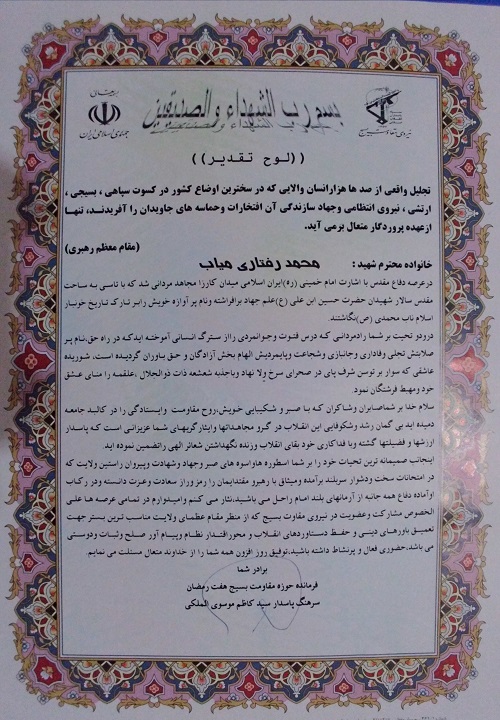 بسم رب الشهداء والصدیقین
جمهوری اسلامی ایران
نیروی مقاومت بسیج
((لوح تقدیر))
تجلیل واقعی از صد ها هزارانسان والایی که در سخترین اوضاع کشور در کسوت سپاهی ، بسیجی ،
ارتشی ، نیروی انتظامی وجهاد سازندگی آن افتخارات وحماسه های جاویدان را آفریدند، تنها
ازعهده پروردگار متعال برمی آید.
(مقام معظم رهبری)
خانواده محترم شهید : محمد رفتاری میاب
درعرصه دفاع مقدس با اشارت امام خمینی (ره)ایران اسلامی میدان کارزا مجاهد مردانی شد که با تاسی به ساحت
مقدس سالار شهیدان حضرت حسین ابن علی (ع)علم جهاد برافراشته ونام پر آوازه خویش رابر تارک تاریخ خونبار
اسلام ناب محمدی (ص)نگاشتند.
درودو تحیت بر شما رادمردانی کـه درس فتـوت وجـوانمردی رااز سـترگ انسـانی آموختـه ایدکـه در راه حق،نام پـر
صلابتش تجلی وفاداری وجانبازی وشجاعت وپایمردیش الهام بخش آزادگان و حـق بـاوران گردیـده اسـت، شـوریده
عاشقی که سوار بر توسن شرف پای در صحرای سرخ ولا نهاد وباجذبه شعشعه ذات ذوالجلال ،علقمـه را منـای عشق
خود ومهبط فرشتگان نمود.
سلام خدا بر شماصابران وشاکران کـه بـا صبر و شکیبایی خـویش،روح مقاومـت وایسـتادگی را در کالبـد جامعـه
دمیده اید بی گمان رشد وشکوفایی این انقلاب در گـرو مجاهـداتها وایثارگریهـای شـما عزیزانـی اسـت کـه پاسـدار
ارزشها و فضیلتها گشته وبا فداکاری خود بقای انقلاب وزنده نگهداشتن شعائر الهی راتضمین نموده اید.
اینجانب صمیمانه ترین تحیات خود را بر شما اسطوره هاواسوه های صبر وجهاد وشهادت وپیروان راستین ولایت که
در امتحانات سخت ودشوار سربلند برآمده ومیثاق با رهبر مقتدایمان را رمز وراز سعادت وعزت دانسته ودر رکاب
اوآماده دفاع همه جانبه از آرمانهای بلند امام راحل مـی باشـید،نثار مـی کـنم وامیـدوارم در تمـامی عرصـه هـا علـی
الخصوص مشارکت وعضویت در نیروی مقاوت بسیج که از منظر مقام عظمای ولایت مناسب تـرین بسـتر جهـت
تعمیـق باورهای دینی و حفظ دستاوردهای انقلاب و محوراقتـدار نظـام وپیـام آور صـلح وثبـات ودوستی
می باشد،حضوری فعال و پرنشاط داشته باشید،توفیق روز افزون همه شما را از خداوند متعال مسئلت می نمایم.
برادر شما
فرمانده حوزه مقاومت بسیج هفت رمضان
سرهنگ پاسدار سید کاظم موسوی الملکی